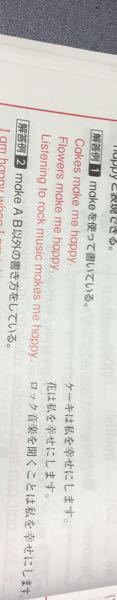 happyと表現できる。
解答例 1 makeを使って書いている。
Cakes make me happy. ケーキは私を幸せにします。
Flowers make me happy. 花は私を幸せにします。
Listening to rock music makes me happy. ロック音楽を聞くことは私を幸せにします。
解答例 2 make A B以外の書き方をしている。
I am happy when I